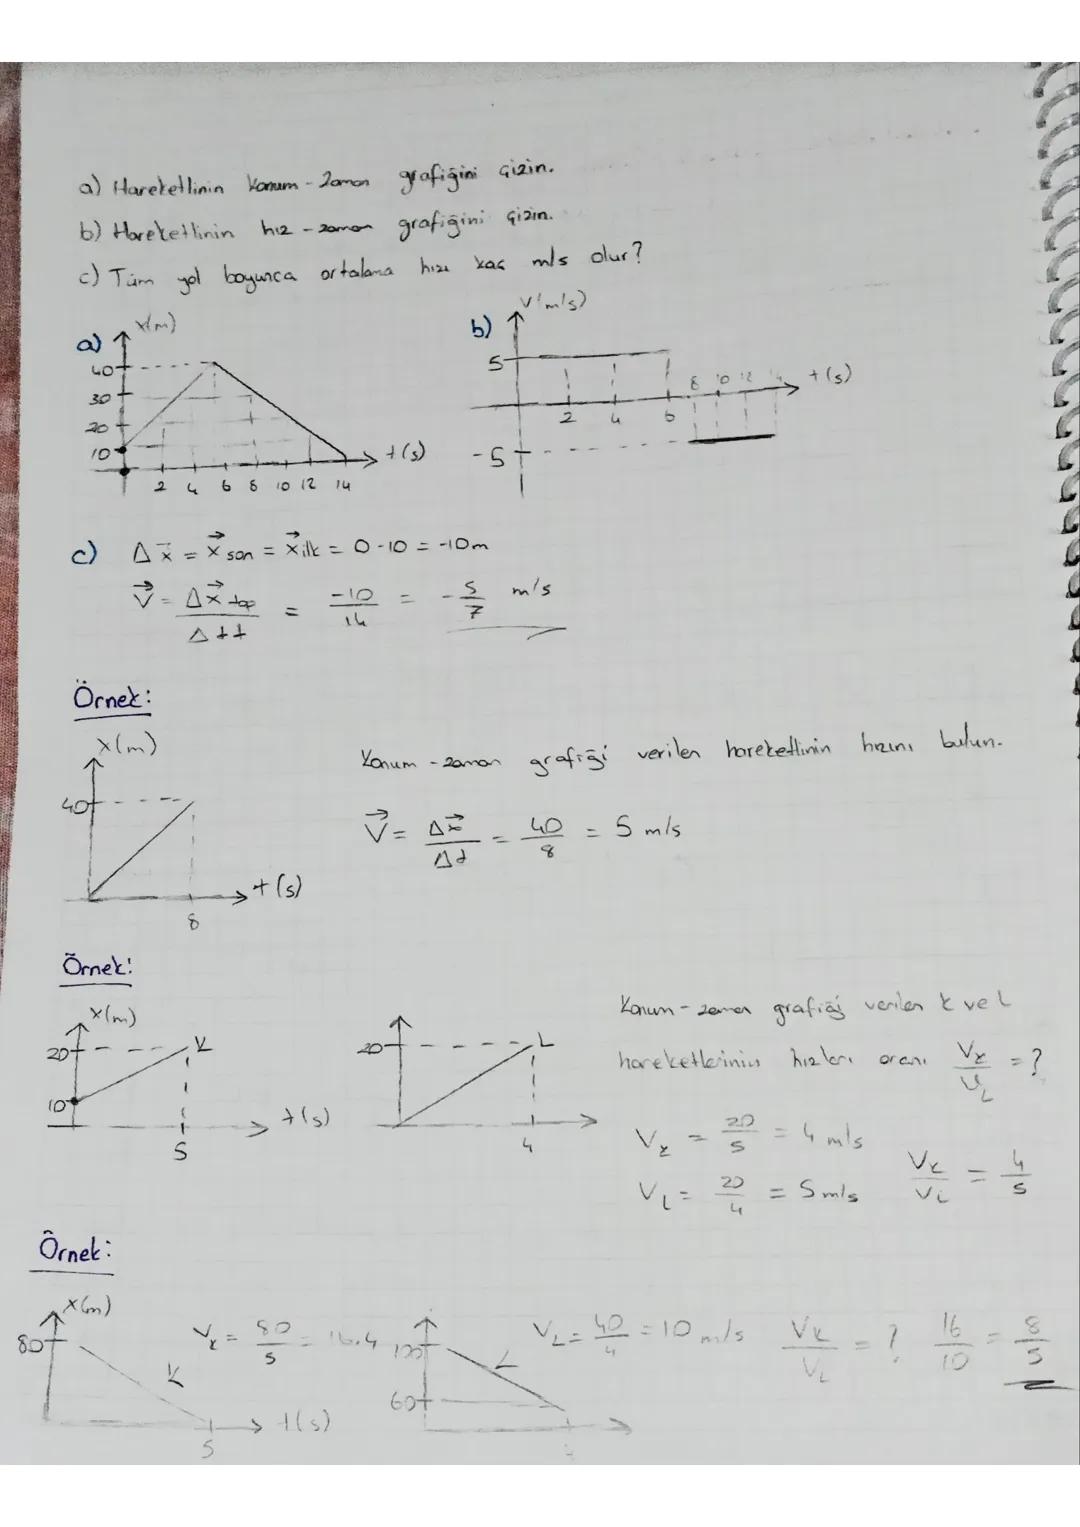 a) Hareketlinin konum-zaman grafiğini çizin.
b) Hareketlinin hız-zaman grafiğini çizin.
c) Tüm yol boyunca ortalama hızı kaç m/s olur?
a) x(m)
40
30
20
10
2 4 6 8 10 12 14 t(s)
b) V(m/s)
5
8 10 12 14 t(s)
2 4 6
-5
c) Δx = x son = x ilk = 0-10 = -10m
V = Δx top / Δtt = -10/14 = -5/7 m/s
Örnek:
x(m)
40
8
t(s)
Konum-zaman grafiği verilen hareketlinin hızını bulun.
V = Δx/Δt = 40/8 = 5 m/s
Örnek:
x(m)
20
10
K
5
t(s)
20
L
4
Konum-zaman grafiği verilen K ve L
hareketlerinin hızları oranı VK/VL = ?
VK = 20/5 = 4 m/s
VL = 20/4 = 5 m/s
VK/VL = 4/5
Örnek:
x(m)
80
K
5
t(s)
VK = 80/5 = 16.4
100
60
L
VL = 40/4 = 10 m/s
VK/VL = ? 16/10 = 8/5